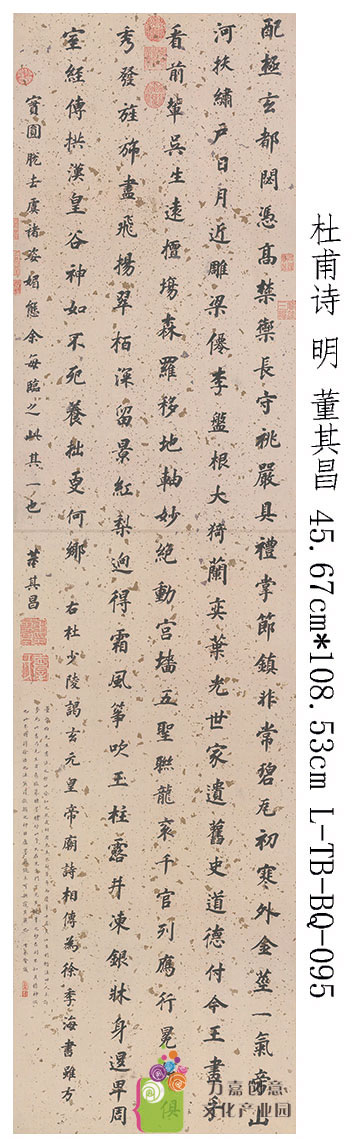 配極玄都閟憑高禁禦長守祧嚴具禮掌節鎮非常碧瓦初寒外金莖一氣旁山
河扶繡戶日月近雕梁僊李盤根大猗蘭奕葉光世家遺舊史道德付今王畫手
看前輩吳生遠擅場森羅移地軸妙絕動宮墻五聖聯龍袞千官列鴈行冕俱
秀發旌旆盡飛揚翠栢深留景紅梨迥得霜風箏吹玉柱露井凍銀牀身退卑周
室經傳拱漢皇谷神如不死養拙更何鄉 右杜少陵謁玄元皇帝廟詩相傳為徐季海書雖方
實圓脫去虞褚姿媚態余每臨之此其一也 董其昌
杜甫诗 明 董其昌 45.67cm*108.53cm L-TB-BQ-095
力嘉创意
文化产业园